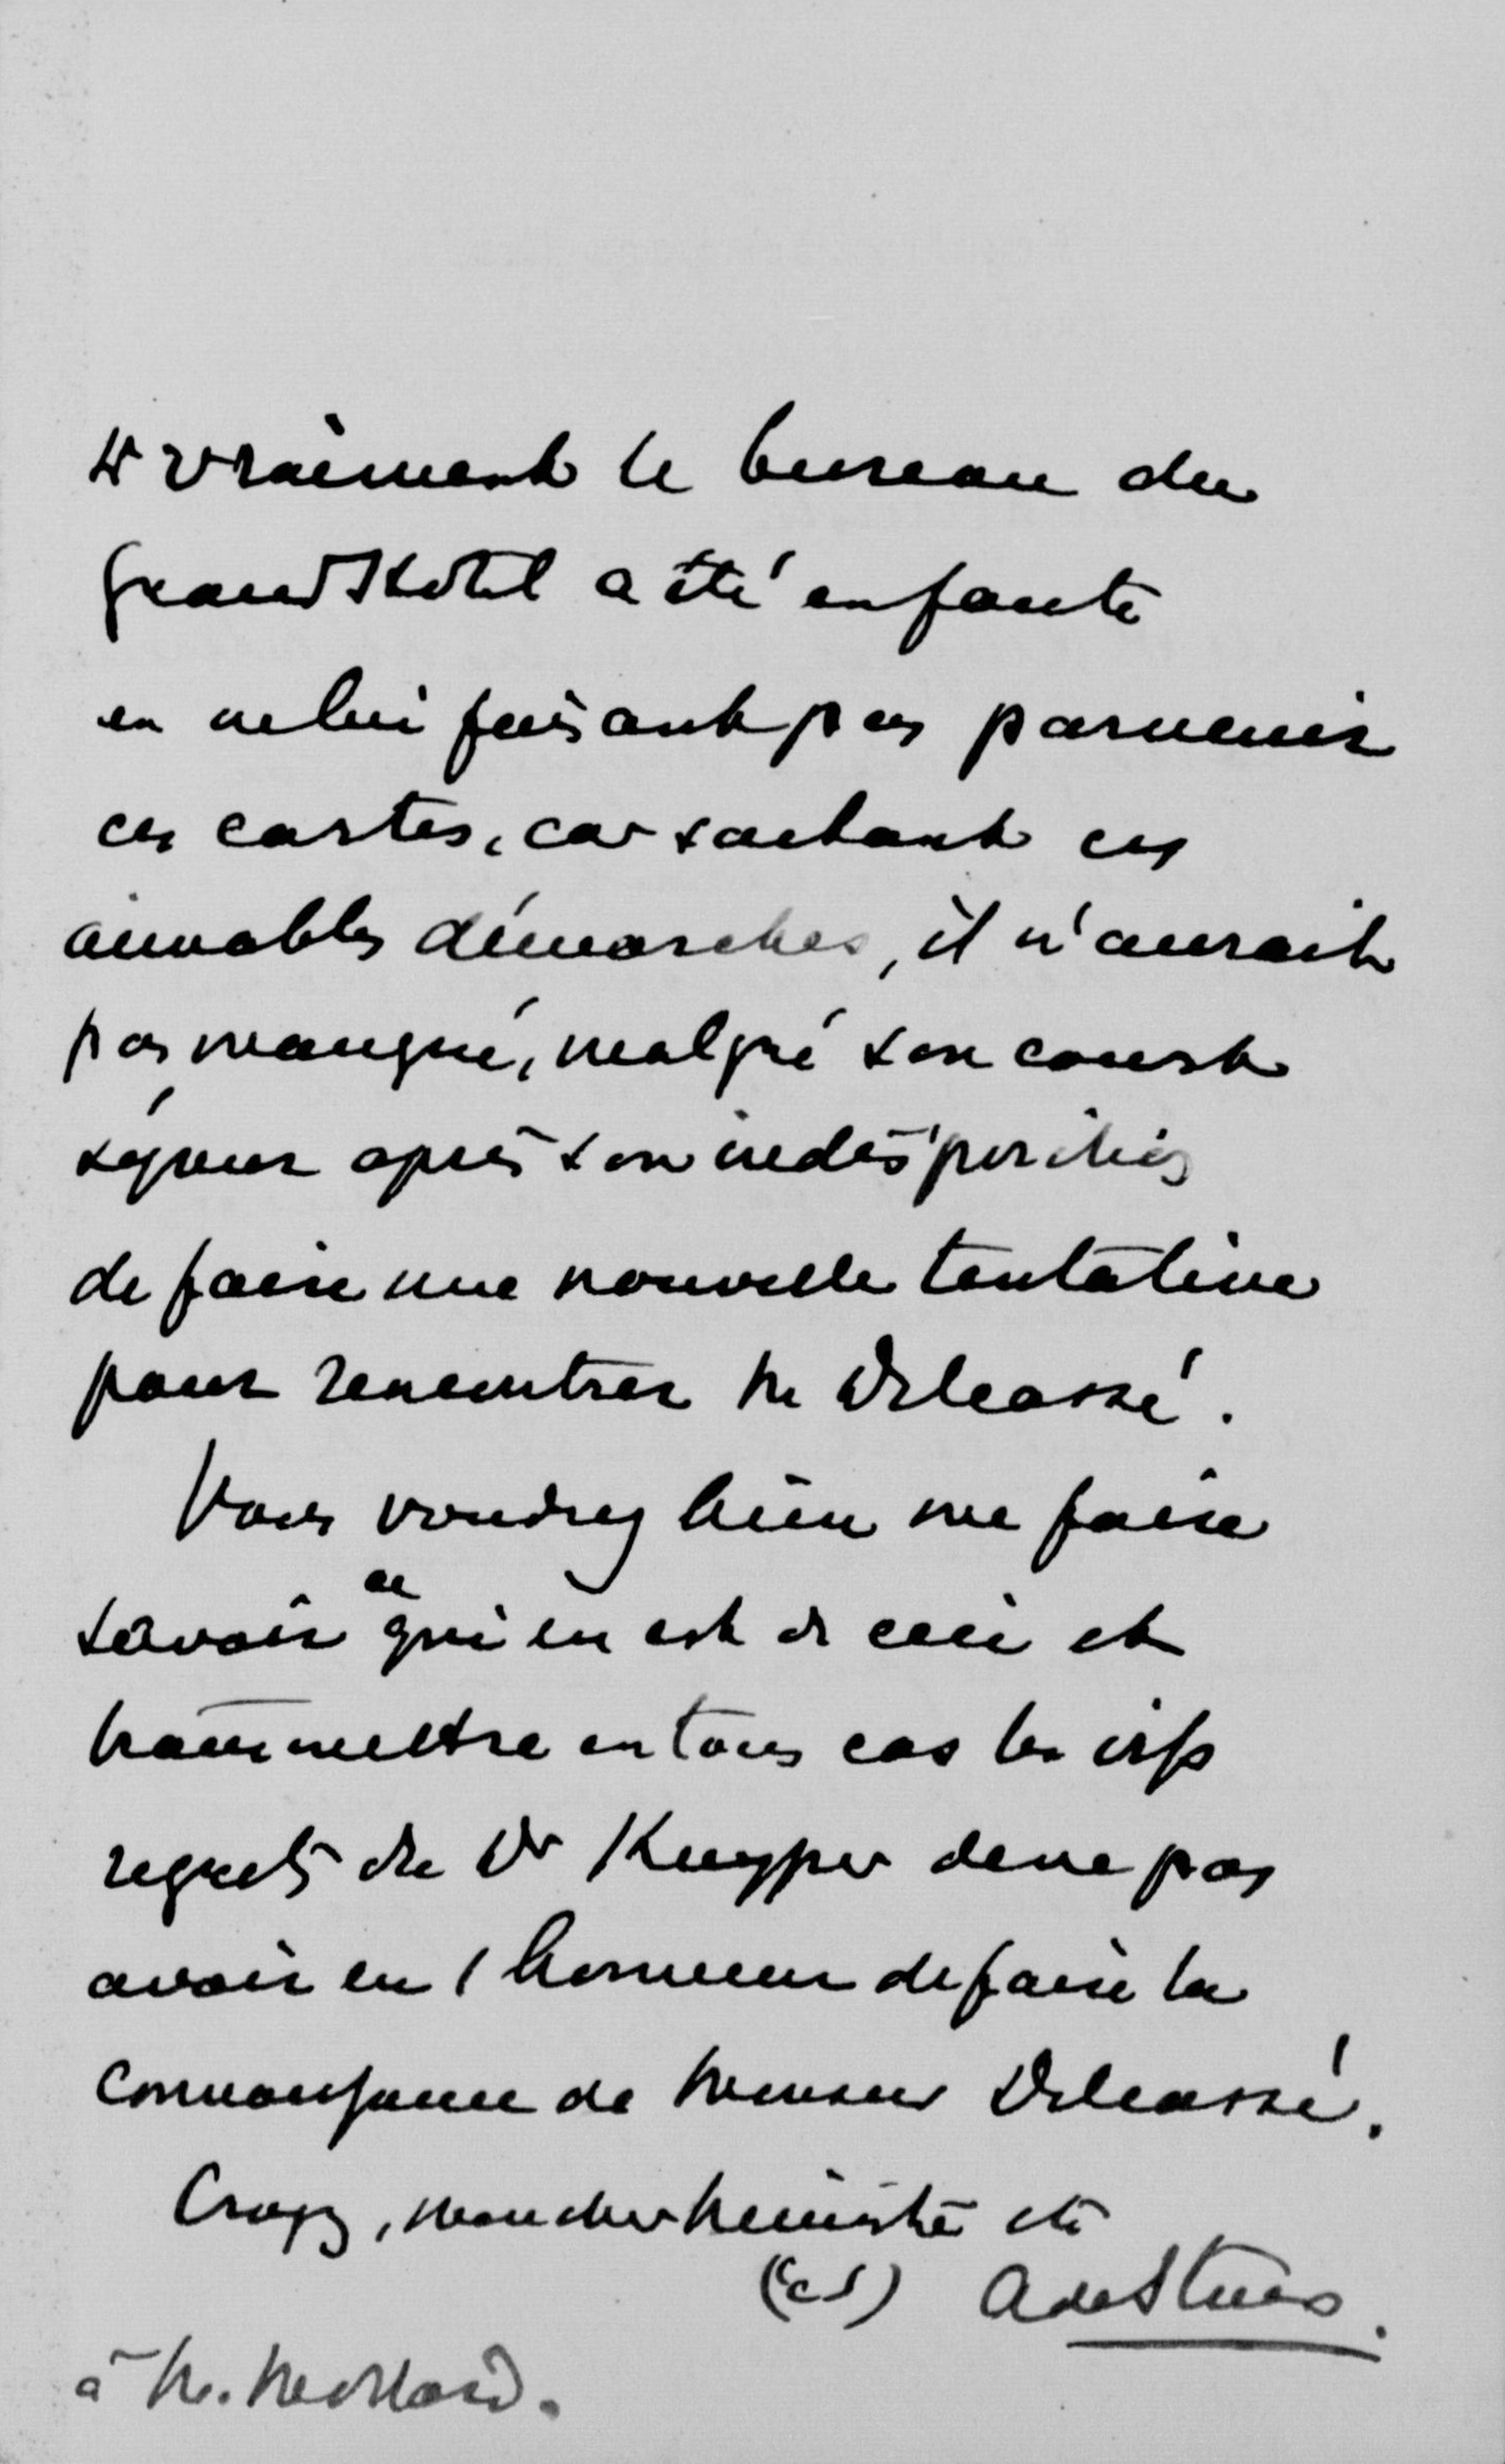 si vraiment le bureau du
Grand Hotel a été en faute
en ne lui faisant pas parvenir
ces cartes, car sachant ces
aimables démarches, il n'aurait
pas manqué, malgré son court
séjour après son indisposition
de faire une nouvelle tentative
pour rencontrer M Delcassé.
Vous voudrez bien me faire
savoir ce qui en est de ceci et
transmettre en tous cas les vifs
regrets du Dr Kuyper de ne pas
avoir eu l honneur de faire la
connaissance de Monsieur Delcassé.
Croyez, mon cher Ministre etc
(s) A de Stuers.
à M.